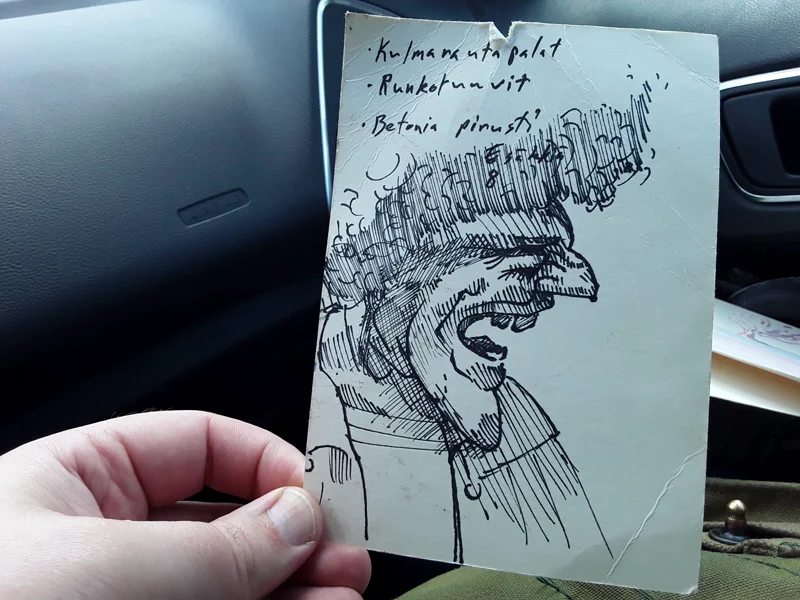 · Kulmarautapalat
· Runkoruuvit
· Betonia pirusti